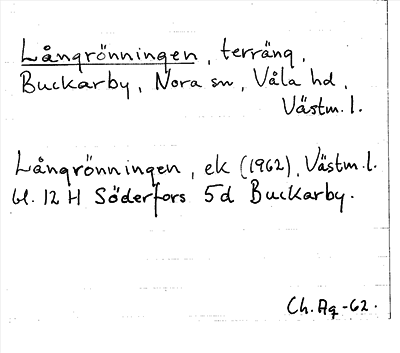 Långrönningen, terräng,
Buckarby, Nora sn, Våla hd,
Västm. l.
Långrönningen, ek (1962), Västm. l.
bl. 12 H Söderfors 5d Buckarby.
Ch. Ag -62.